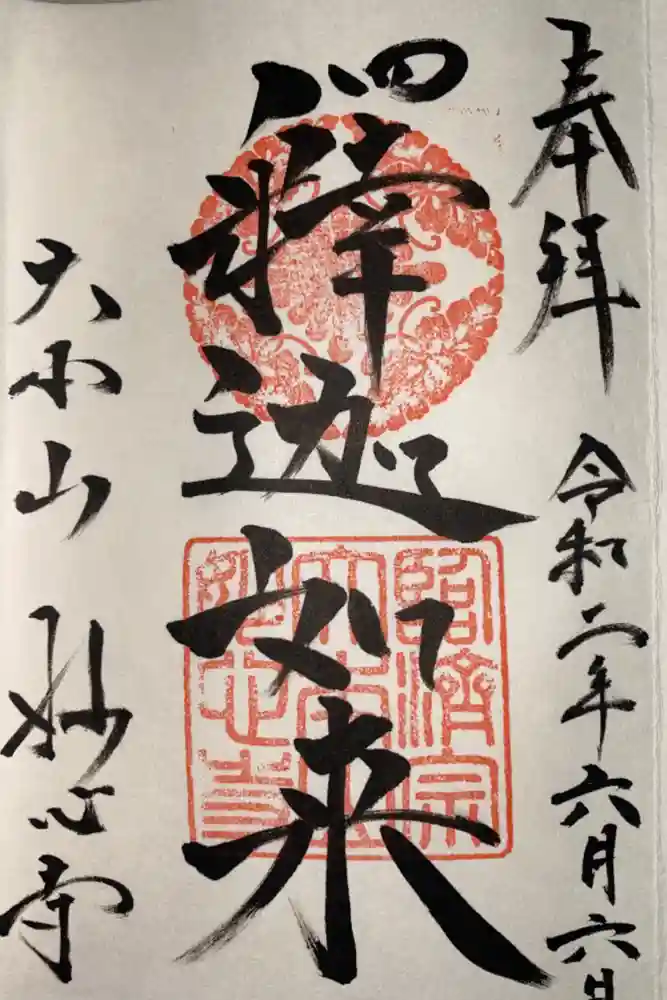 奉拝
令和二年六月六日
釋迦如来
大本山 妙心寺
臨済宗
大本山
妙心寺